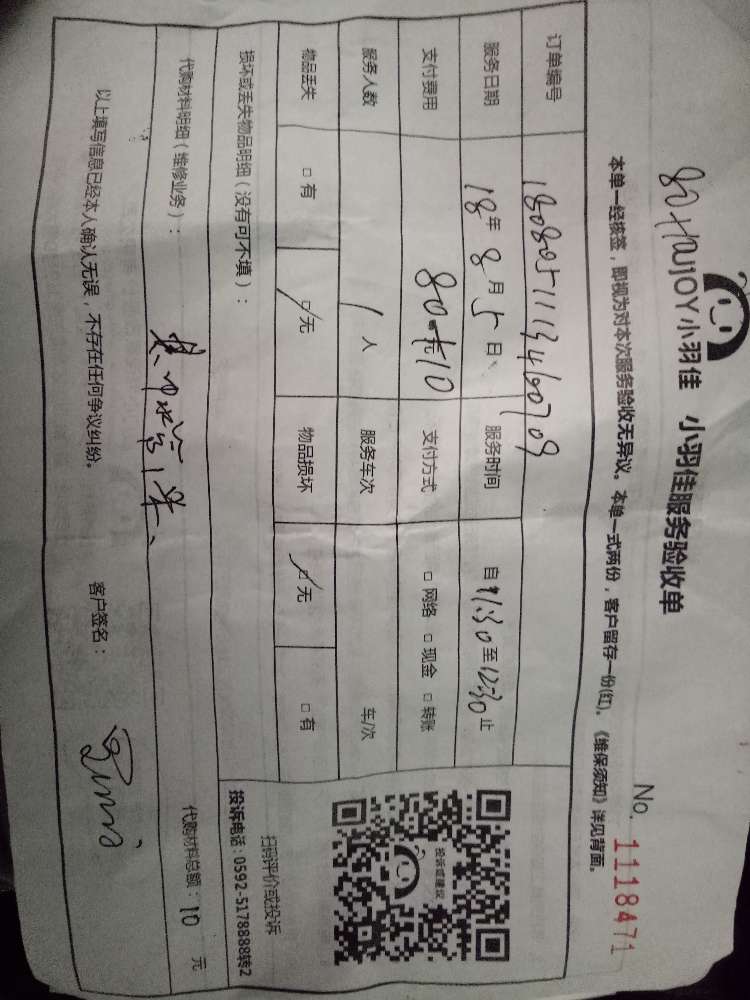 小羽佳 小羽佳服务验收单
No. 11118471
本单一经核签，即视为对本次服务验收无异议。本单一式两份，客户留存一份(红)。《维保须知》详见背面。
订单编号
服务日期 18年 8月 5日 服务时间 自 11:30 至 12:30 止
支付费用 80元+10 支付方式 □ 网络 □ 现金 □ 转账
服务人数 1 人 服务车次 车/次
物品丢失 □ 有 □ 无 物品损坏 □ 无 □ 有
投诉或建议
扫码评价或投诉
投诉电话：0592-5178888转2
损坏或丢失物品明细（没有可不填）：
代购材料明细（维修业务）： 代购材料总额：10 元
以上填写信息已经本人确认无误，不存在任何争议纠纷。 客户签名：